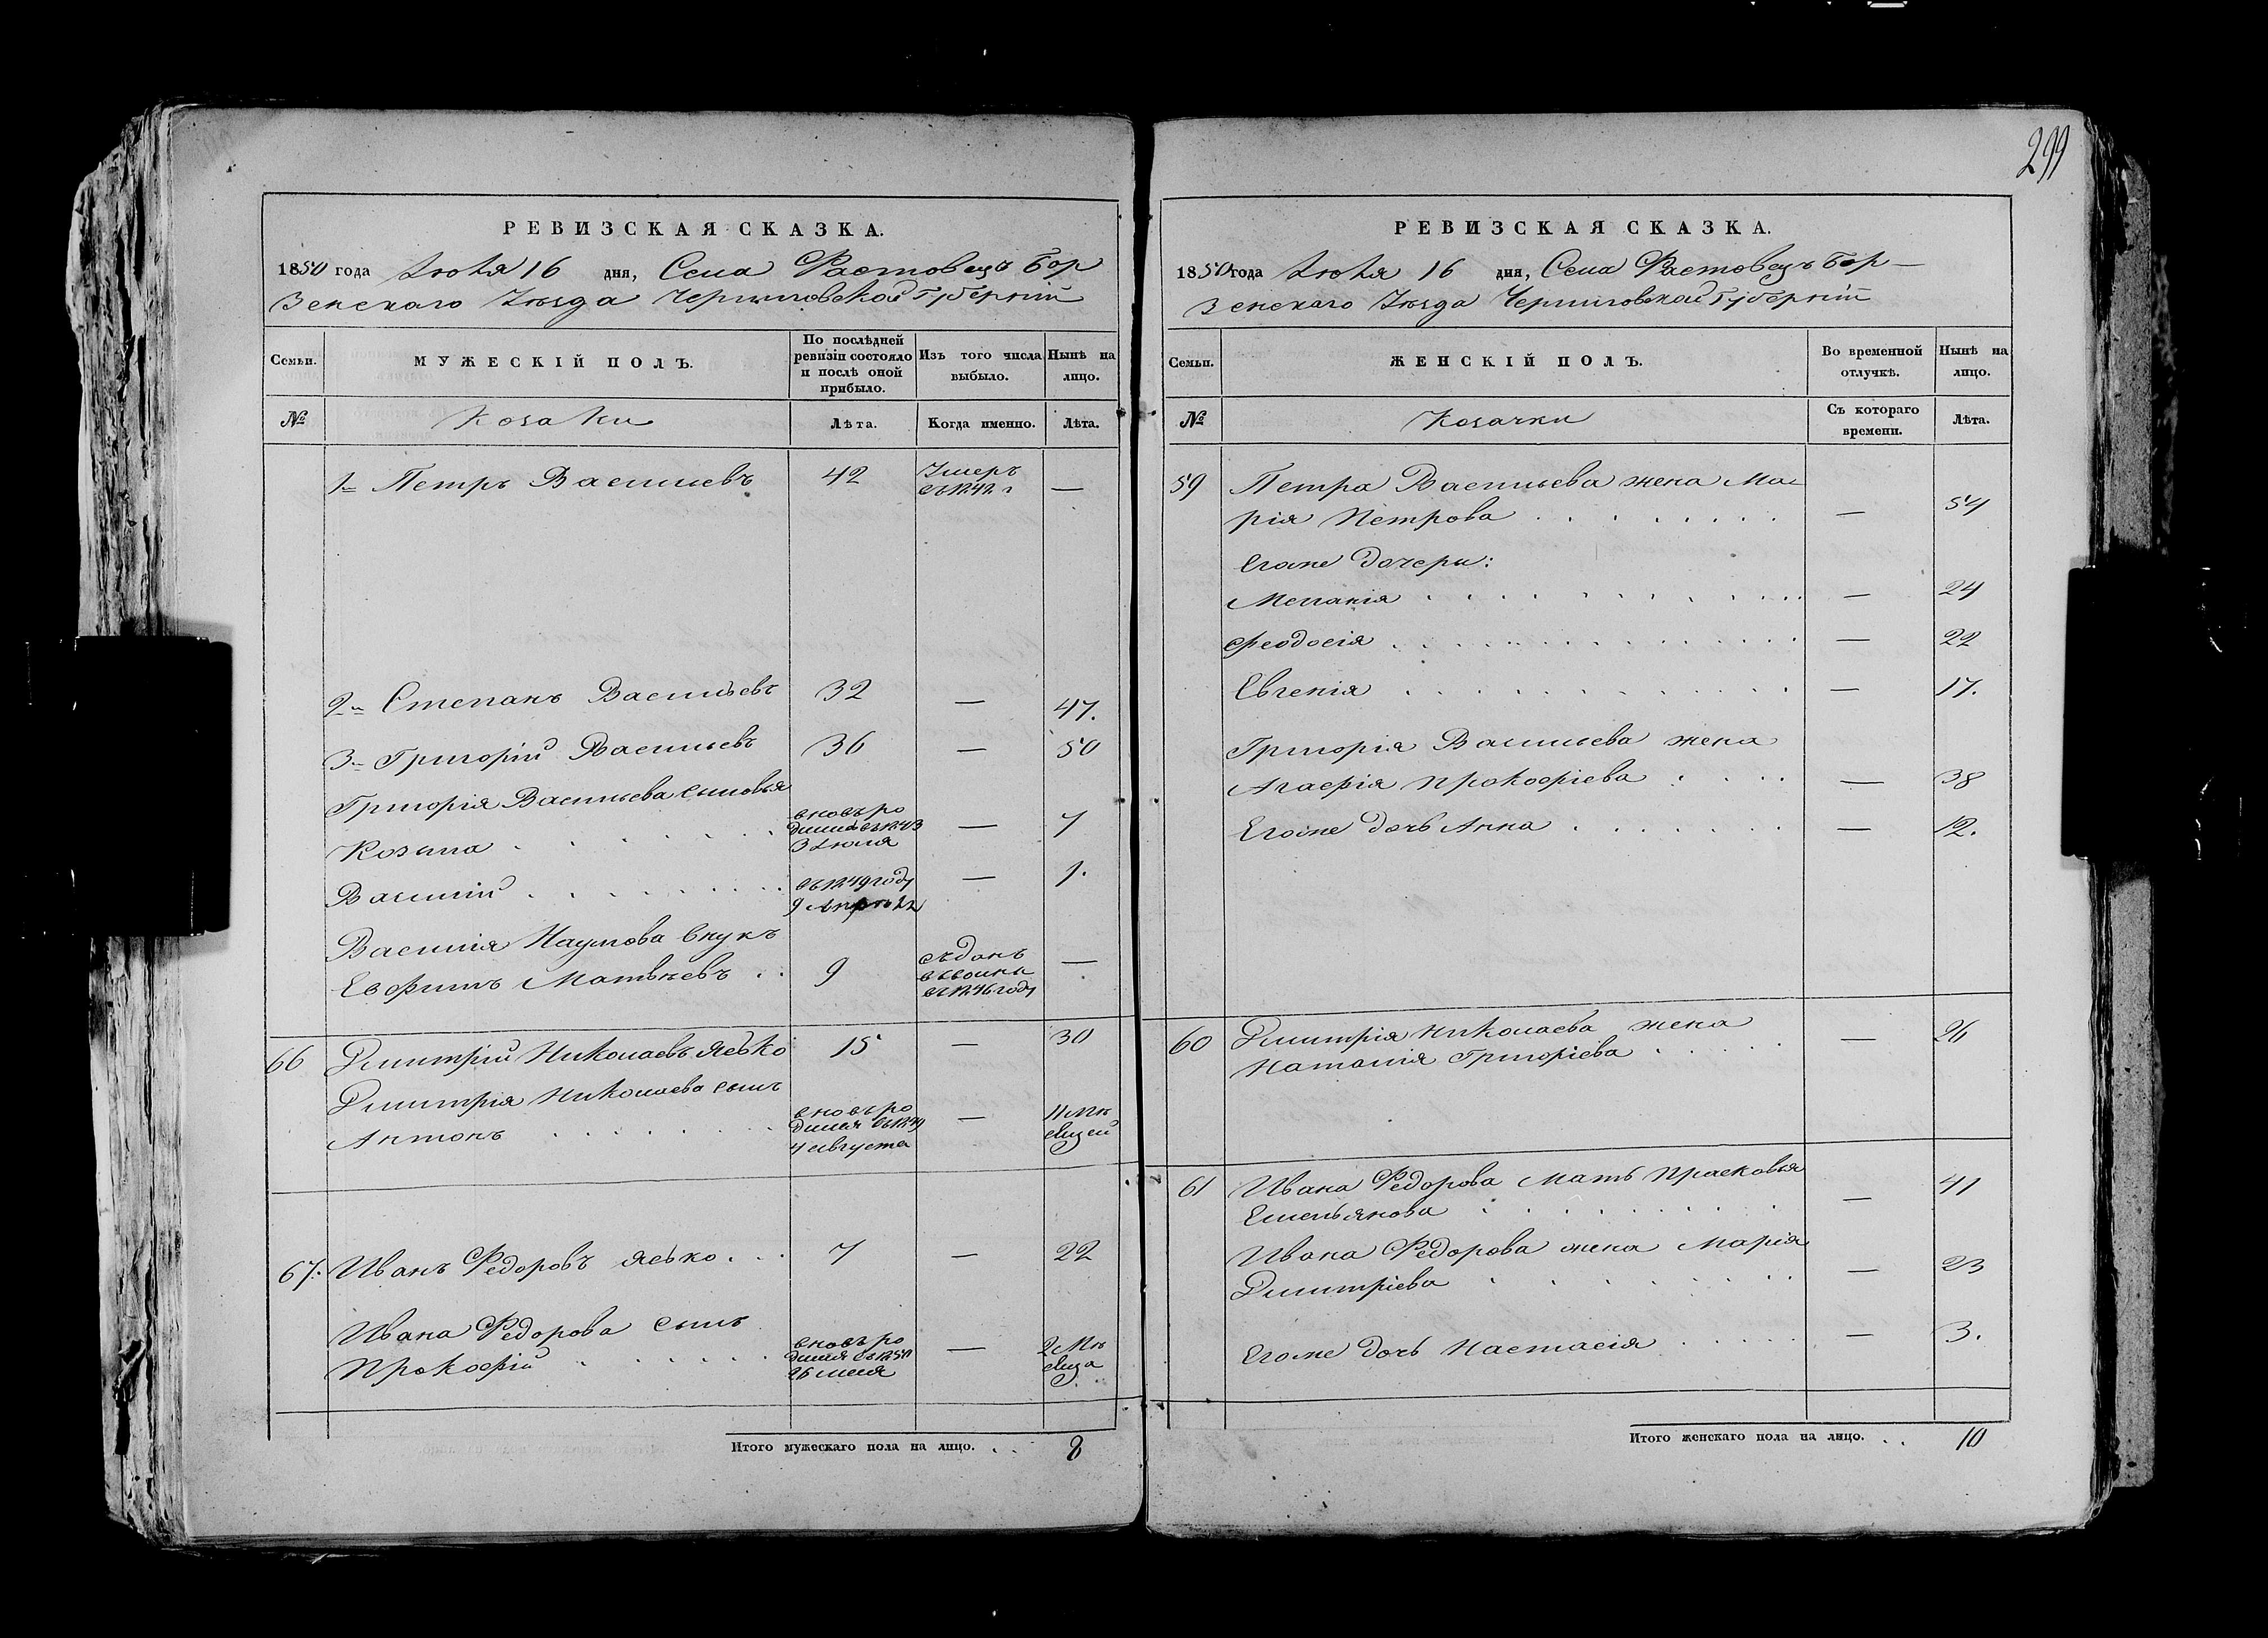 299
РЕВИЗСКАЯ СКАЗКА.
1850 года Іюля 16 дня, Села Растовецъ Бор
зенскаго Уѣзда Черниговской Губерніи
Семьи. МУЖЕСКІЙ ПОЛЪ. По послѣдней ревизіи состояло и послѣ оной прибыло. Изъ того числа выбыло. Нынѣ на лицо.
№ Козаки Лѣта. Когда именно. Лѣта.
1й Петръ Васильевъ 42 Умеръ въ 1842 г —
2й Степанъ Васильевъ 32 — 47.
3й Григорій Васильевъ 36 — 50
Григорія Васильева сыновья
Козьма вновь ро
дился въ 1843
3 Іюля — 7
Василій въ 1849 году
9 Апрѣля — 1.
Василія Наумова внукъ
Евфимъ Матвѣевъ 9 Отданъ
въ 1846 году —
66 Дмитрій Николаевъ Ясько 15 — 30
Дмитрія Николаева сынъ
Антонъ вновь ро
дился въ 1849
4 Августа — 11 мѣ
сяцей
67. Иванъ Федоровъ Ясько 7 — 22
Ивана Федорова сынъ
Прокофій вновь ро
дился въ 1850
26 мая — 2 мѣ
сяца
Итого мужескаго пола на лицо. 8
РЕВИЗСКАЯ СКАЗКА.
1850 года Іюля 16 дня, Села Растовецъ Бор—
зенскаго Уѣзда Черниговской Губерніи
Семьи. ЖЕНСКІЙ ПОЛЪ. Во временной отлучкѣ. Нынѣ на лицо.
№ Козачки Съ котораго времени. Лѣта.
59 Петра Васильева жена Ма
рія Петрова — 54
Егоже дочери:
Меланія — 24
Феодосія — 22
Евгенія — 17.
Григорія Васильева жена
Агафія Прокофіева — 38
Егоже дочь Анна — 12.
60 Дмитрія Николаева жена
Наталія Григоріева — 26
61 Ивана Федорова мать Прасковья
Емельянова — 41
Ивана Федорова жена Марія
Дмитріева — 23
Егоже дочь Настасія — 3.
Итого женскаго пола на лицо. 10